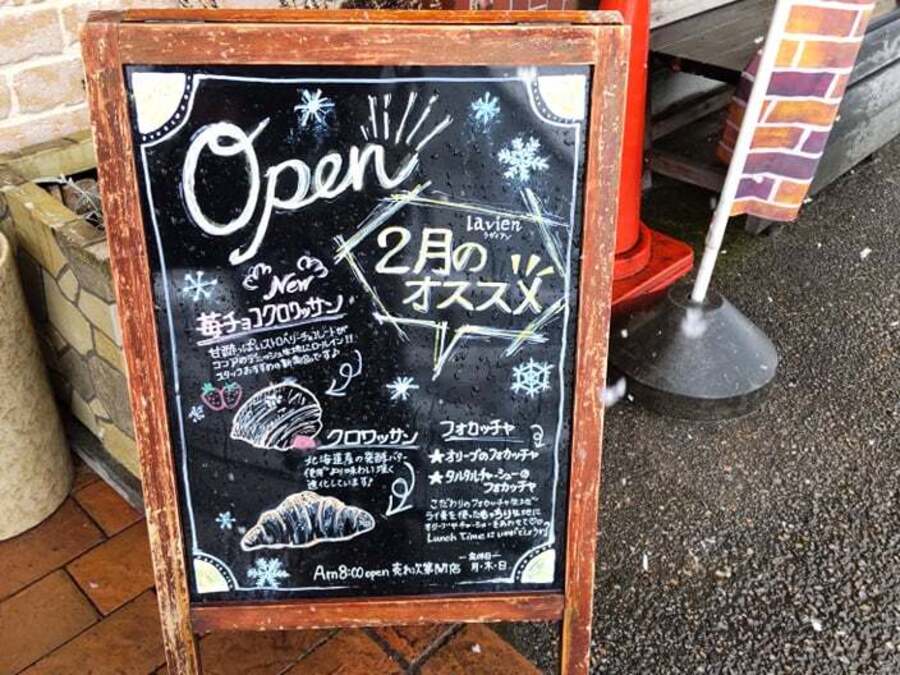 Open
Lavien
ラヴィアン
2月の
オススメ
New
苺チョコクロワッサン
甘酸っぱいストロベリーチョコレートが
ココアのデニッシュ生地にロールイン!!
スタッフおすすめの新商品です♪
クロワッサン
北海道産の発酵バター
使用 より味わい深く
進化しています♪
フォカッチャ
★オリーブのフォカッチャ
★タルタルチャーシューの
フォカッチャ
こだわりのフォカッチャ生地
ライ麦を使ったもっちり生地に
オリーブやチャーシューをあわせて
Lunch timeにいかがでしょうか
Am8:00 open 売れ次第閉店
定休日
月・木・日